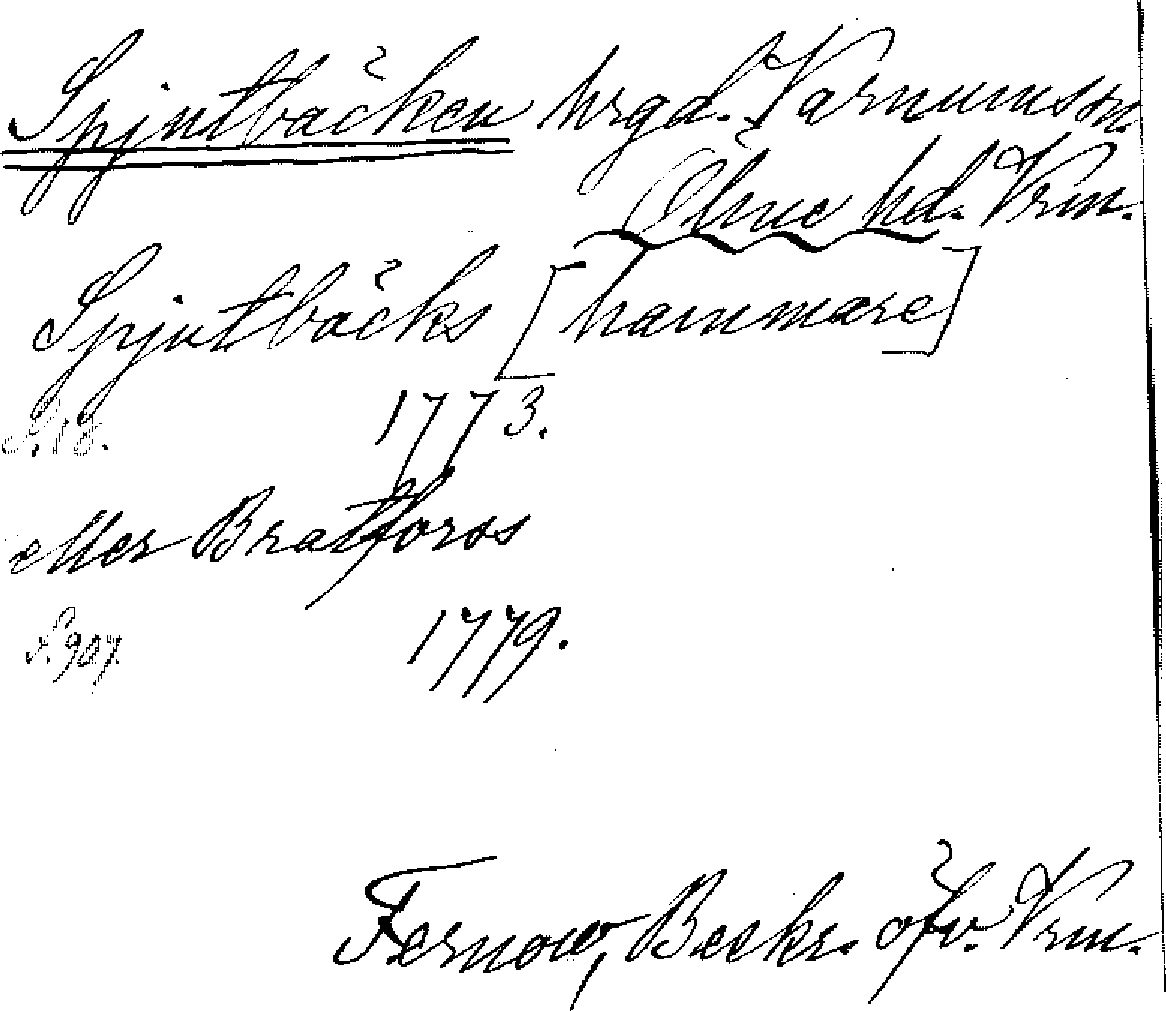 Spjutbäcken hrgd. Varnums sn.
Ölme hd. Vrm.
Spjutbäcks [hammare]
1773.
S. 18.
eller Bratfors
S. 907. 1779.
Fernow, Beskr. öfv. Vrm.